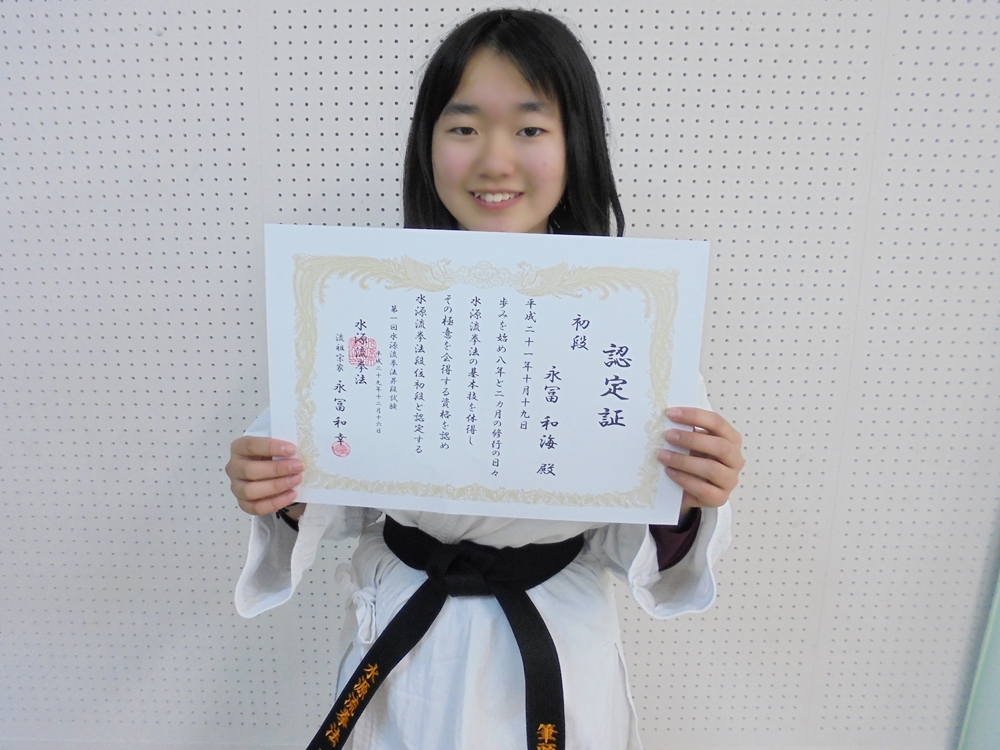 認定証
初段
永冨 和海 殿
平成二十一年十月十九日
歩みを始め八年と二ヵ月の修行の日々
水源流拳法の基本技を体得し
その極意を会得する資格を認め
水源流拳法段位初段と認定する
第一回水源流拳法昇段試験
平成二十九年十二月十六日
水源流拳法
流祖宗家 永冨 和幸
水源流拳法
筆